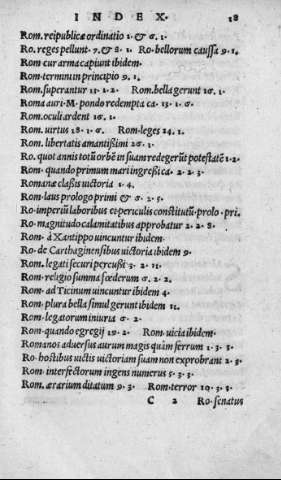 INDEX. 18
Rom. reipublicæ ordinatio 1. & σ. 1.
Ro. reges pellunt. 7. & 8. 1. Ro. bellorum caussa 9. 1.
Rom cur arma capiunt ibidem.
Rom. termini in principio 9. 1.
Rom. superantur 13. 1. 2. Rom. bella gerunt 1σ. 1.
Roma auri. M. pondo redempta ca. 13. 1. σ.
Rom. oculi ardent 1σ. 1.
Rom. uirtus 18. 1. σ. Rom. leges 24. 1.
Rom. libertatis amantissimi 2σ. 1.
Ro. quot annis totū orbē in suam redegerūt potestatē 1. 2.
Rom. quando primum mari ingressi ca. 2. 2. 3.
Romanæ classis uictoria 1. 4.
Rom. laus prologo primi & σ. 2. 5.
Ro. imperiū laboribus & periculis constitutū. prolo. pri.
Ro. magnitudo calamitatibus approbatur 2. 2. 8.
Rom. à Xantippo uincuntur ibidem.
Ro. de Carthaginensibus uictoria ibidem 9.
Rom. legati securi percussi 3. 2. 11.
Rom. religio summa fœderum σ. 2. 2.
Rom. ad Ticinum uincuntur ibidem 4.
Rom. plura bella simul gerunt ibidem 11.
Rom. legatorum iniuria σ. 2.
Rom. quando egregij 19. 2. Rom. uicia ibidem.
Romanos aduersus aurum magis quàm ferrum 1. 3. 3.
Ro. hostibus uictis uictoriam suam non exprobrant 2. 3.
Rom. interfectorum ingens numerus 5. 3. 3.
Rom. ærarium ditatum 9. 3. Rom. terror 10. 3. 3.
C 2 Ro. senatus